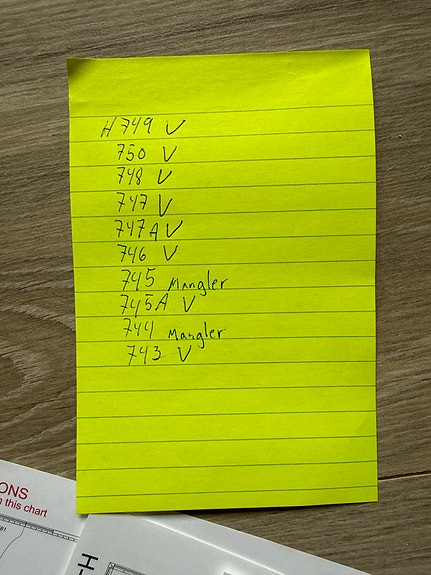 H 749 V
750 V
748 V
747 V
747A V
746 V
745 Mangler
745A V
744 Mangler
743 V
ONS
this chart